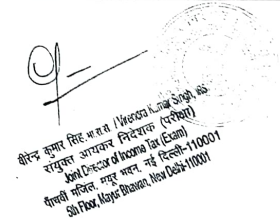 वीरेन्द्र कुमार सिंह, भा.रा.से. / Virendra Kumar Singh, IRS
संयुक्त आयकर निदेशक (परीक्षा)
Joint Director of Income Tax (Exam)
पाँचवीं मंजिल, मयूर भवन, नई दिल्ली-110001
5th Floor, Mayur Bhawan, New Delhi-110001